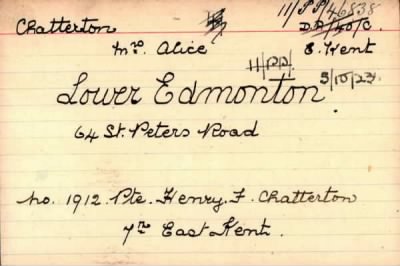 11/PP/46838
Chatterton D.R/40/C.
Mrs. Alice E. Kent
11/PP/. 5/10/23.
Lower Edmonton.
64 St. Peters Road
No. 1912. Pte. Henry. F. Chatterton
7th East Kent.